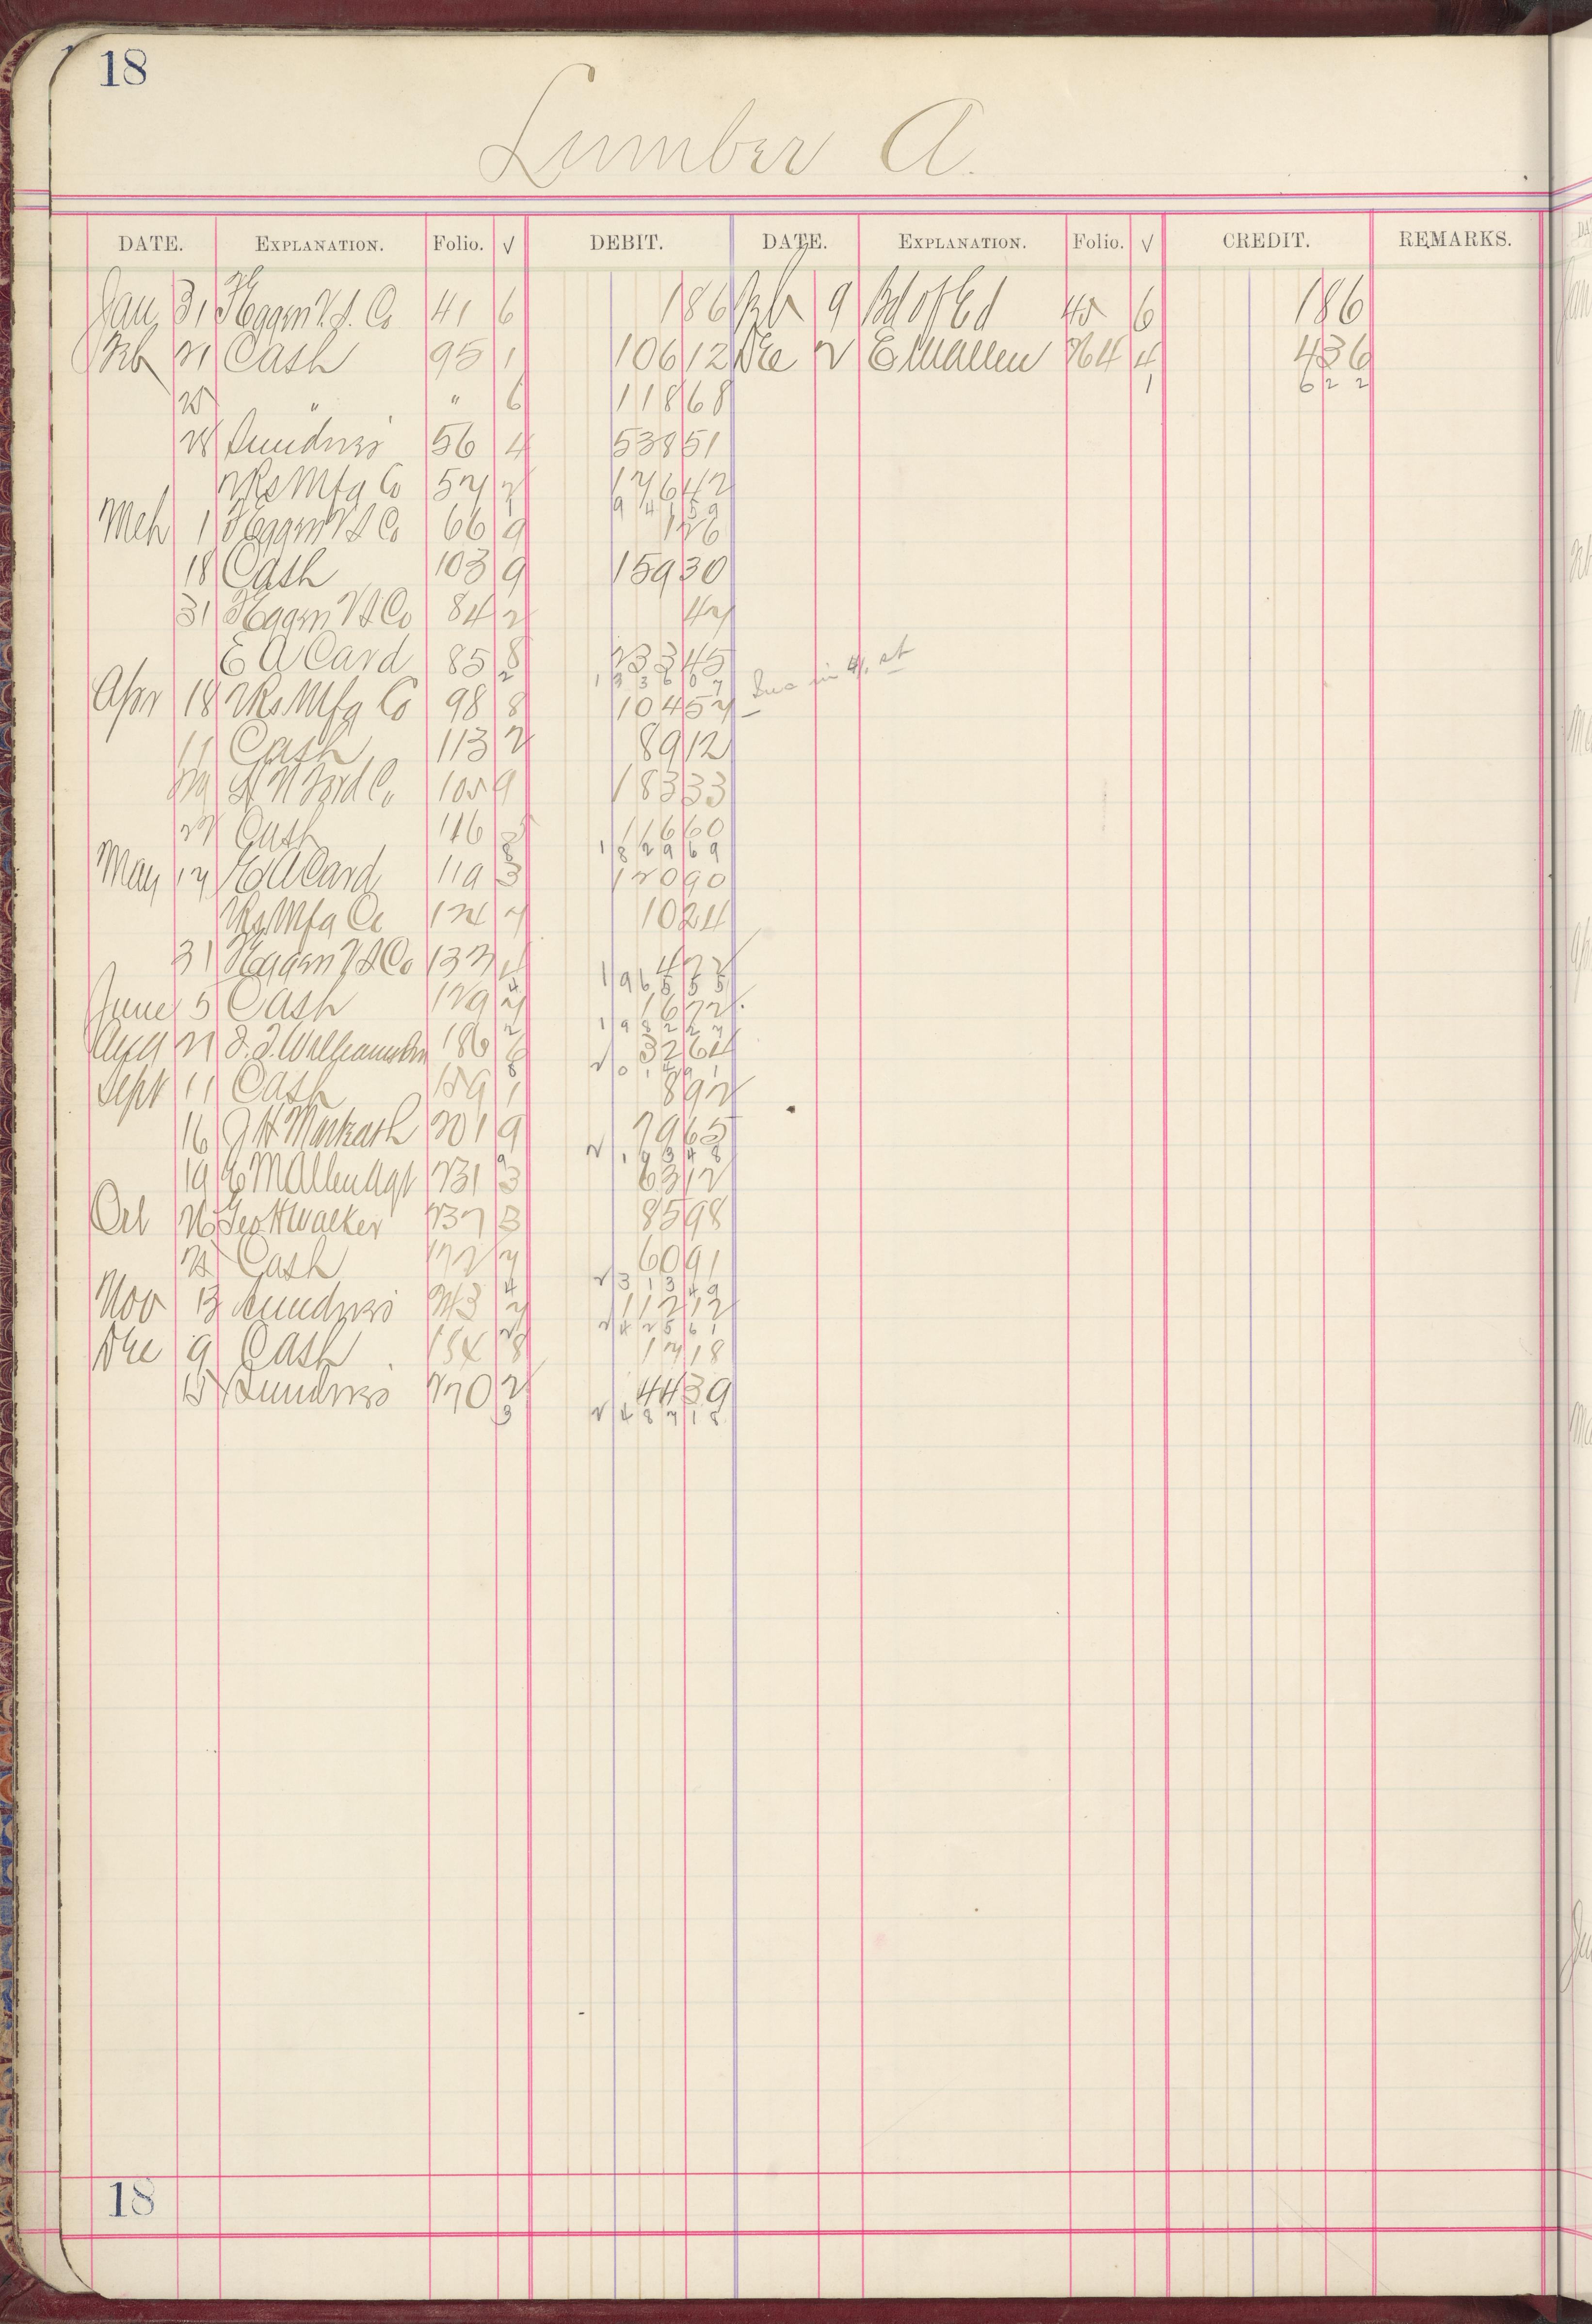 18
Lumber A.
DATE. EXPLANATION. Folio. √ DEBIT. DATE. EXPLANATION. Folio. √ CREDIT. REMARKS.
Jan 31 Co 41 6 1 86 Feb 9 Bd of Ed 45 6 1 86
Feb 21 Cash 95 1 106 12 Dec 2 E M Allen 264 4 4 36
1 6 22
25 " " 6 118 68
28 Sundries 56 4 538 51
Mfg Co 57 2 176 42
941 59
Mch 1 Co 66 9 1 26
18 Cash 103 9 159 30
31 Co 84 2 47
E A Card 85 8 233 45
2 1336 07
Apr 18 Mfg Co 98 8 104 57 Due in
11 Cash 113 2 89 12
Co 105 9 183 33
27 Cash 116 116 60
8 1829 69
May 17 E A Card 119 3 120 90
Mfg Co 124 7 10 24
31 Co 132 4 4 72
1965 55
June 5 Cash 129 7 16 72
2 1982 27
Aug 21 186 32 64
8 2014 91
Sept 11 Cash 159 1 8 92
16 J H 201 9 79 65
9 2103 48
19 E M Allen Agt 231 3 63 12
Oct 26 Geo H Walker 237 3 85 98
Cash 172 7 60 91
4 2313 49
Nov 13 Sundries 243 7 112 12
2 2425 61
Dec 9 Cash 184 8 17 18
15 Sundries 270 2 44 39
3 2487 18
18